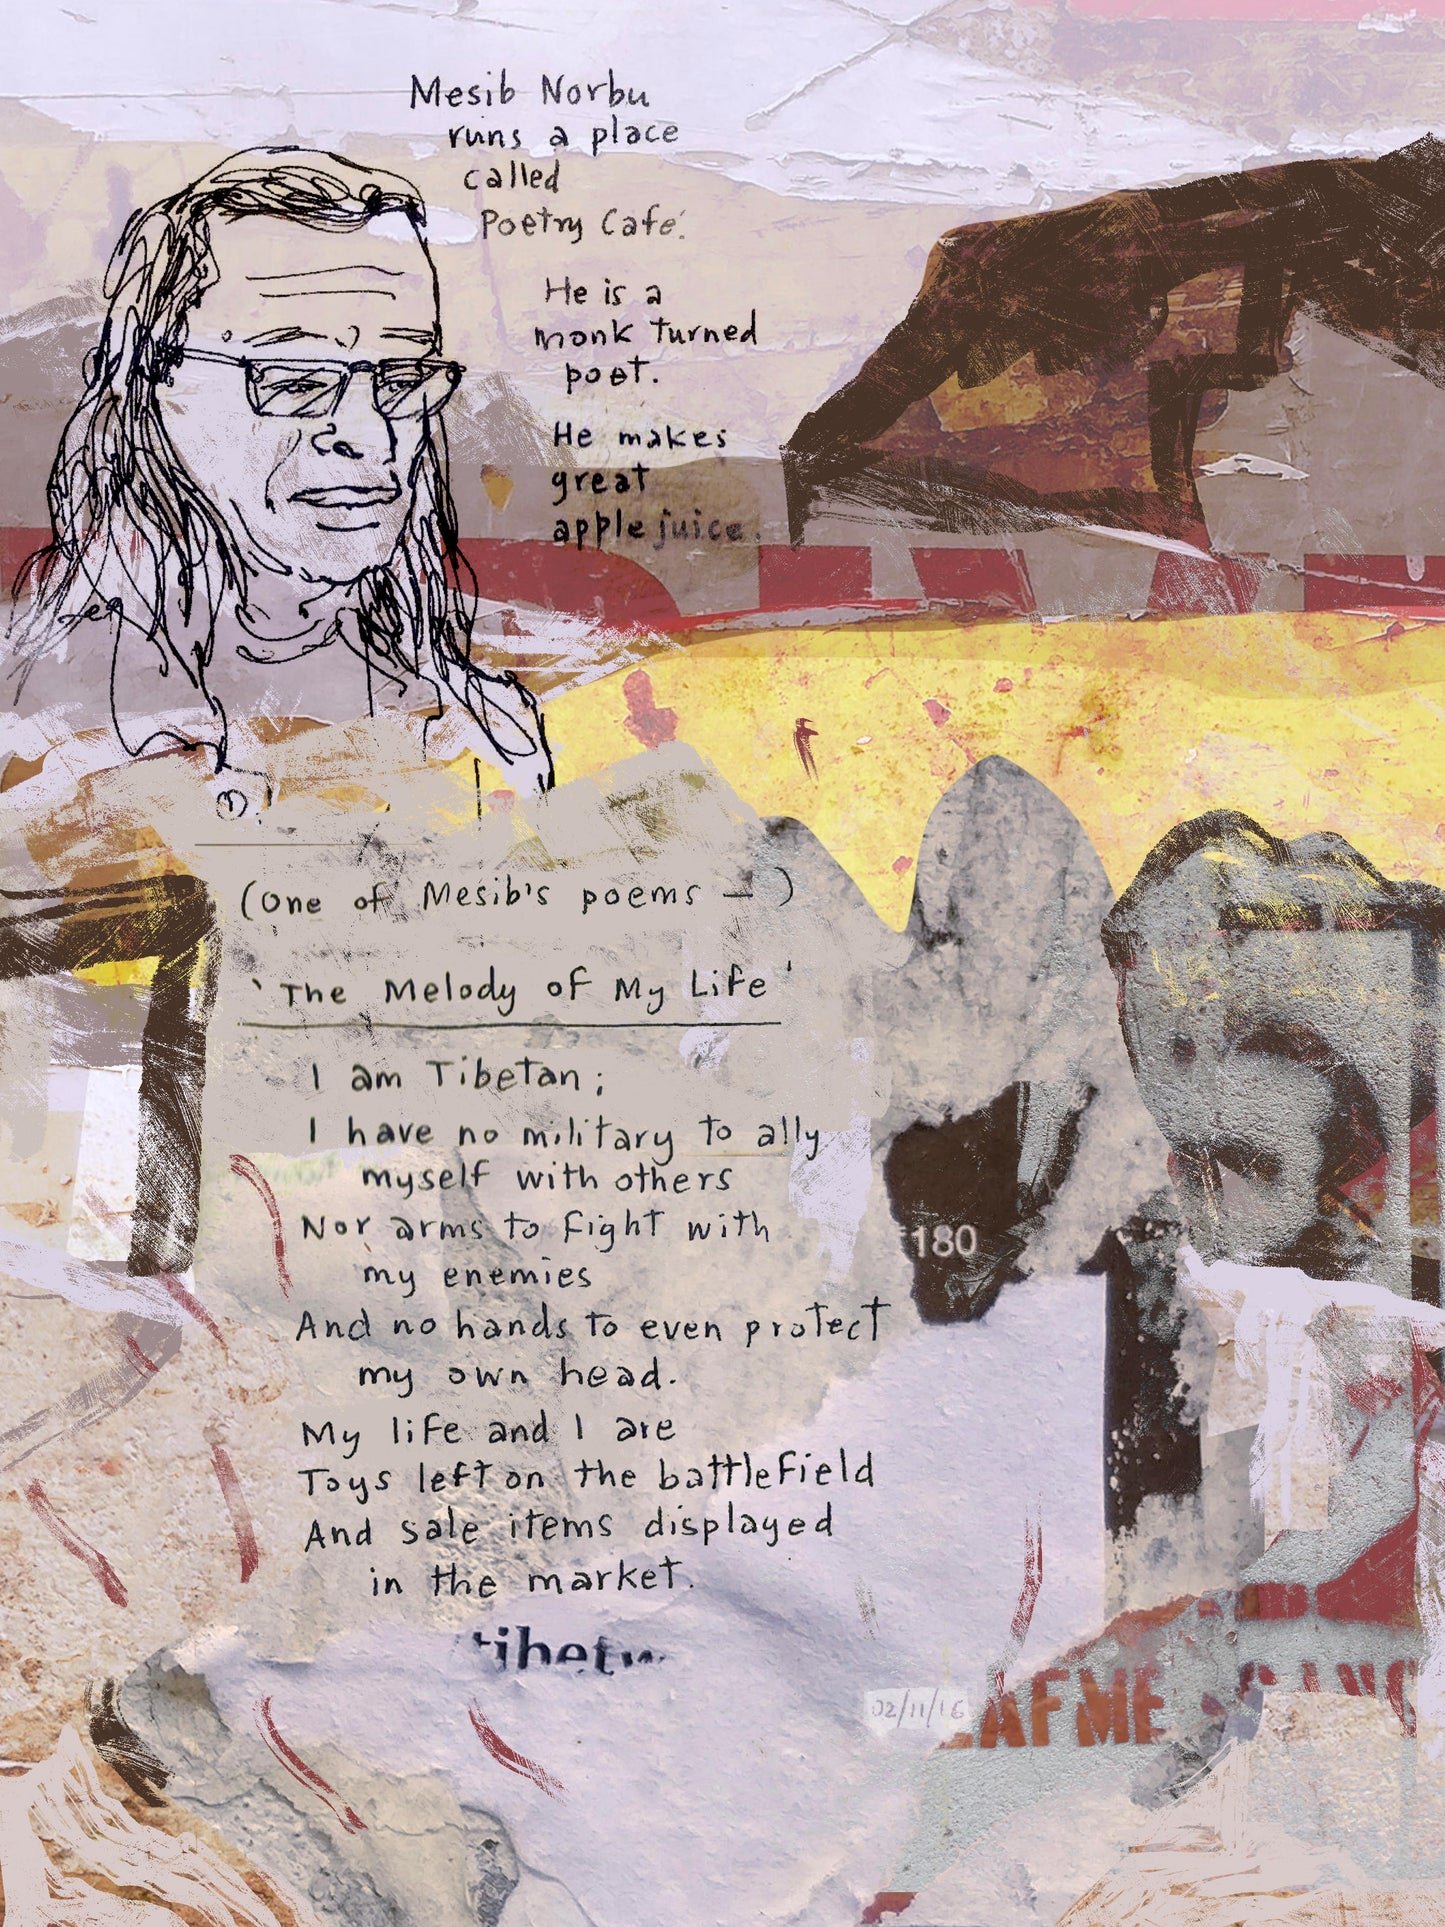 Mesib Norbu
runs a place
called
Poetry Cafe.
He is a
monk turned
poet.
He makes
great
apple juice.
(One of Mesib's poems — )
'The Melody of My Life'
I am Tibetan;
I have no military to ally
myself with others
Nor arms to fight with
my enemies
And no hands to even protect
my own head.
My life and I are
Toys left on the battlefield
And sale items displayed
in the market.
180
02/11/16